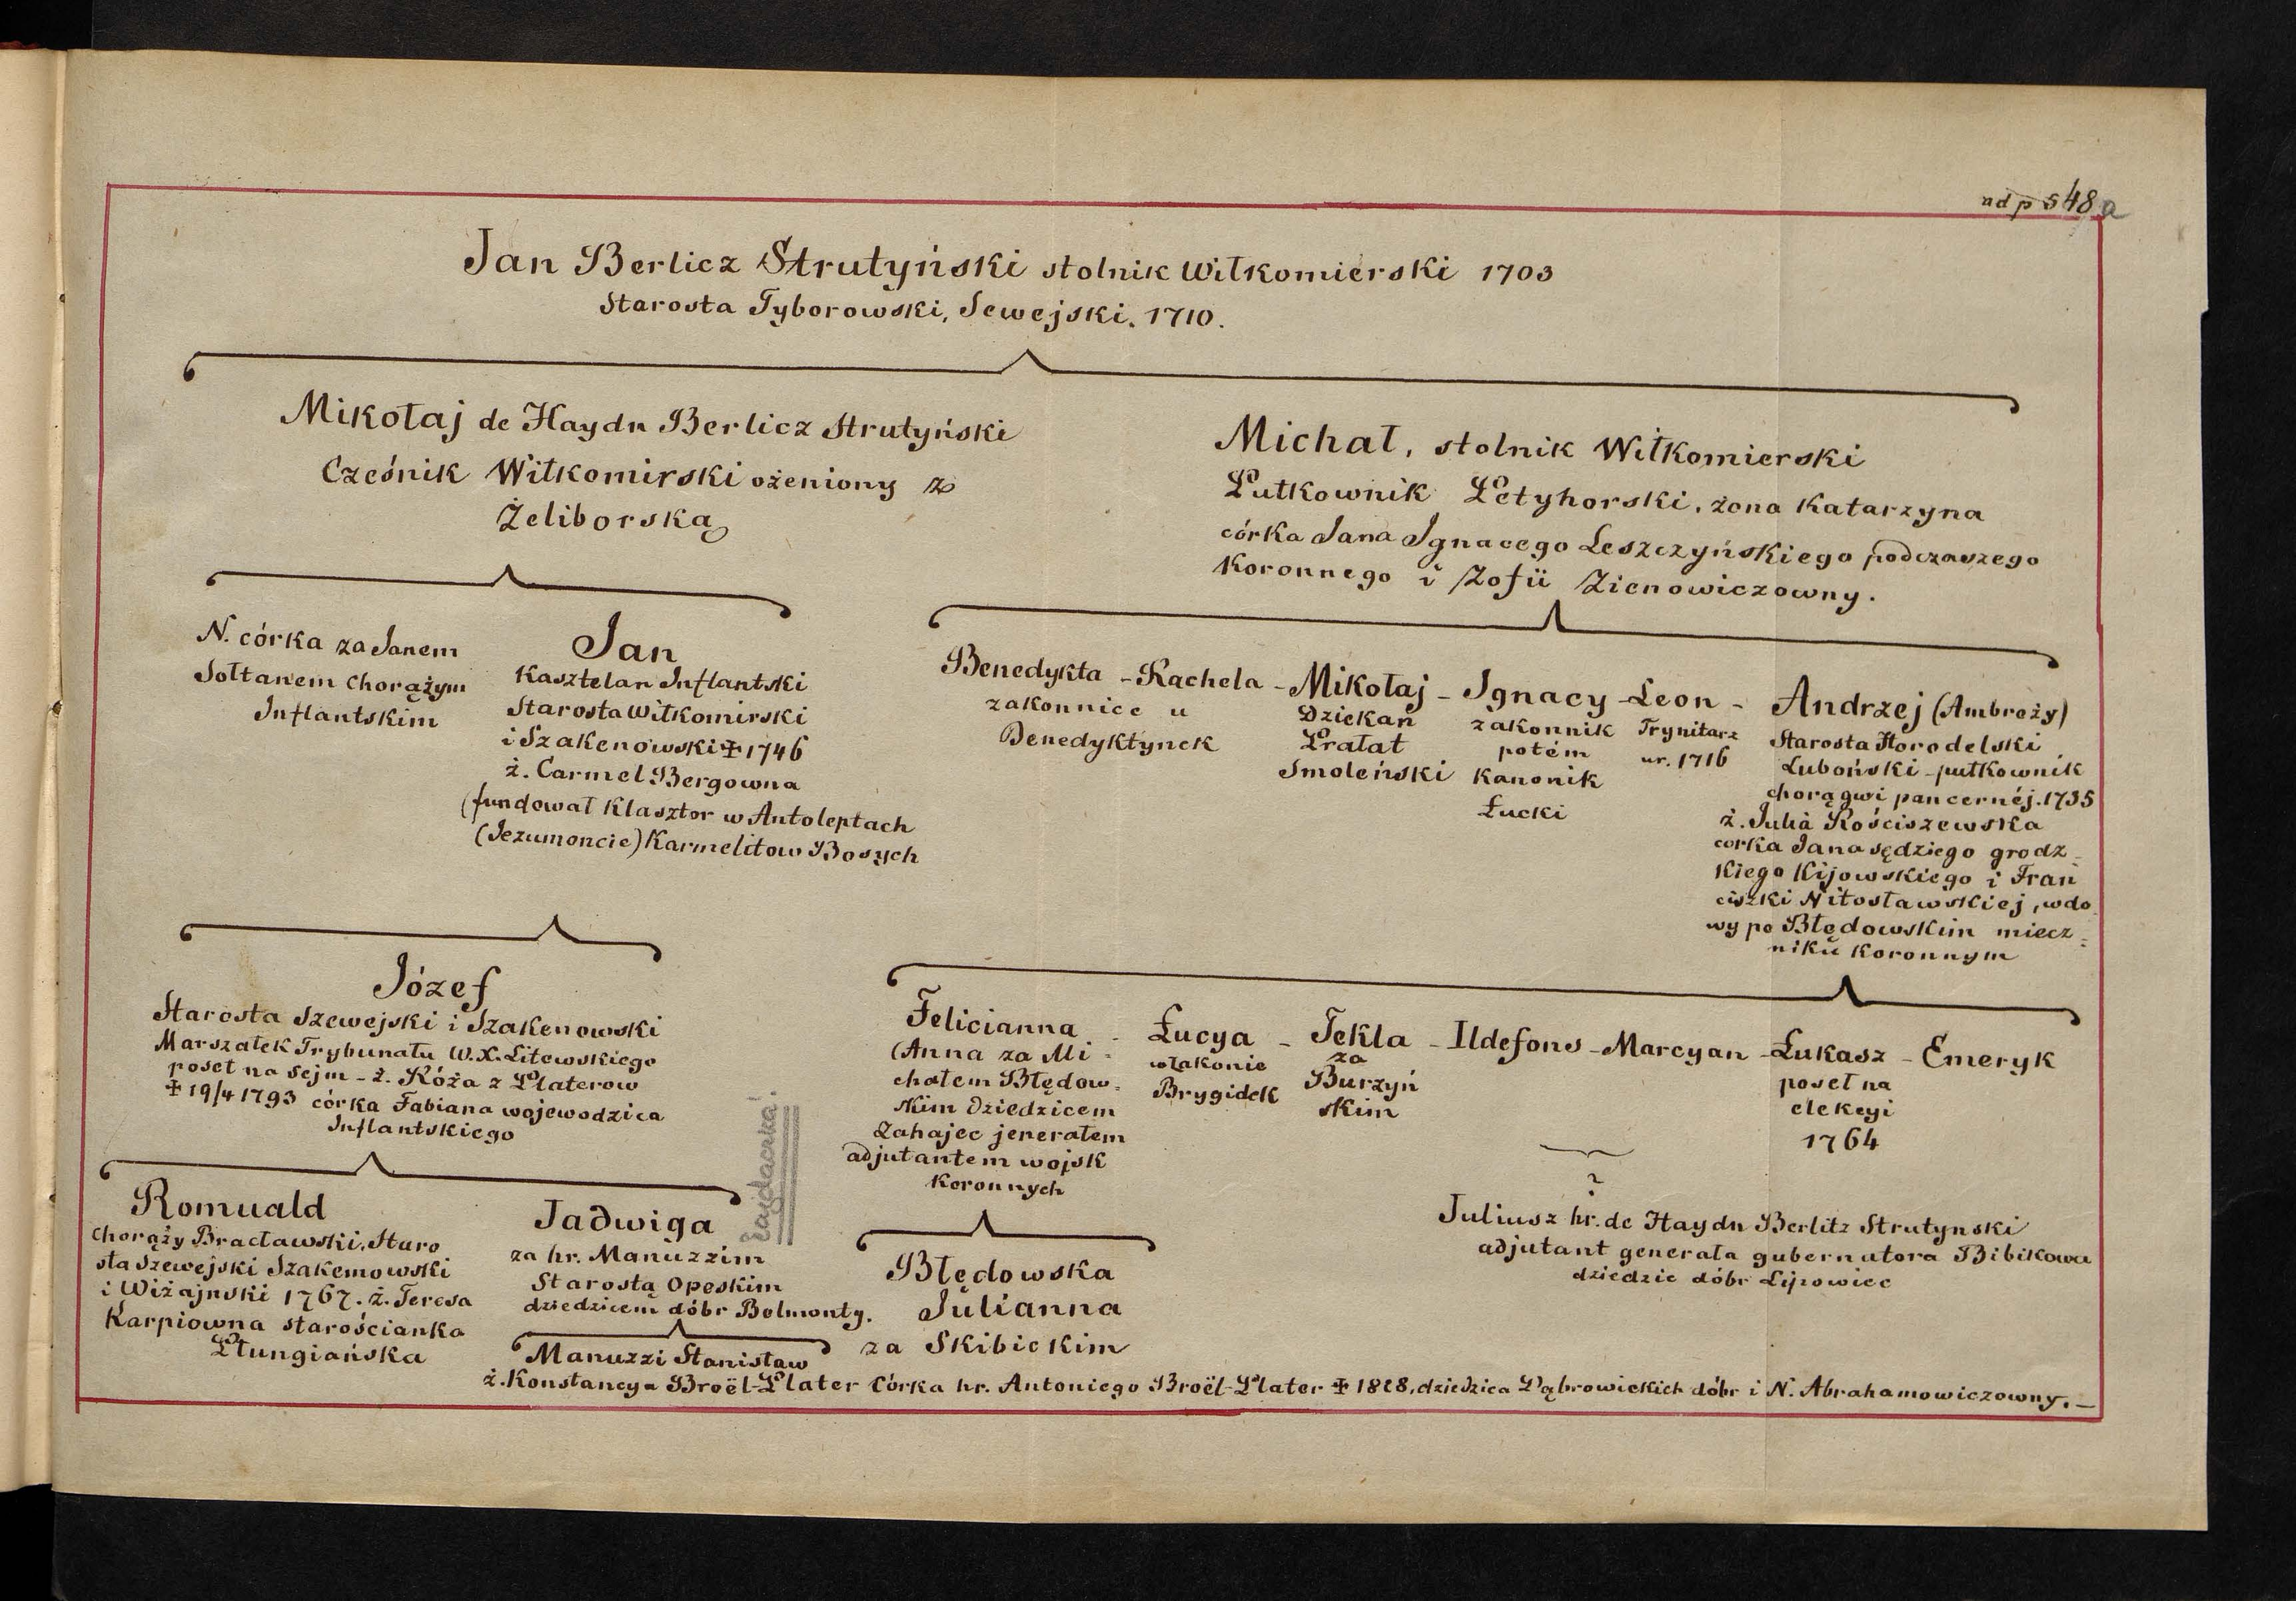 ad p 548 a
Jan Berlicz Strutyński stolnik Wiłkomierski 1703
Starosta Tyborowski, Sewejski. 1710.
Mikołaj de Haydn Berlicz Strutyński
Cześnik Wiłkomirski ożeniony z
Żeliborską
Michał, stolnik Wiłkomierski
Pułkownik Petyhorski, żona Katarzyna
córka Jana Ignacego Leszczyńskiego podczaszego
Koronnego i Zofii Zienowiczowny.
N. córka za Janem
Sołtanem Chorążym
Inflantskim
Jan
Kasztelan Inflantski
Starosta Wiłkomirski
i Szakenowski ✠ 1746
ż. Carmel Bergowna
(fundował Klasztor w Antoleptach
(Jezumoncie) Karmelitow Bosych
Benedykta - Rachela - Mikołaj - Ignacy - Leon - Andrzej (Ambroży)
zakonnice u
Benedyktynek
Dziekan
Prałat
Smoleński
zakonnik
potém
kanonik
Łucki
Trynitarz
ur. 1716
Starosta Horodelski
Luboński - pułkownik
chorągwi pancernéj. 1735
ż. Julia Rościszewska
corka Jana sędziego grodz-
kiego Kijowskiego i Fran
ciszki Nitosławskiej, wdo
wy po Błędowskim miecz-
niku koronnym
Józef
Starosta Szewejski i Szakenowski
Marszałek Trybunału W. X. Litewskiego
poseł na sejm - ż. Róża z Platerow
✠ 19/4 1793 córka Fabiana wojewodzica
Inflantskiego
Felicianna - Łucya - Tekla - Ildefons - Marcyan - Łukasz - Emeryk
(Anna za Mi-
chałem Błędow-
skim dziedzicem
Zahajec jenerałem
adjutantem wojsk
Koronnych
w zakonie
Brygidek
za
Burzyń
skim
poseł na
elekcyi
1764
Romuald
Chorąży Bracławski, Staro
sta Szewejski Szakemowski
i Wiżajnski 1767. ż. Teresa
Karpiowna starościanka
Płungiańska
Jadwiga
za hr. Manuzzim
Starostą Opeskim
dziedzicem dóbr Belmonty.
Manuzzi Stanisław
ż. Konstancya Broël-Plater Córka hr. Antoniego Broël-Plater ✠ 1828, dziedzica Dąbrowickich dóbr i N. Abrahamowiczowny. -
Błędowska
Julianna
za Skibickim
?
Juliusz hr. de Haydn Berlitz Strutynski
adjutant generała gubernatora Bibikowa
dziedzic dóbr Lipowiec